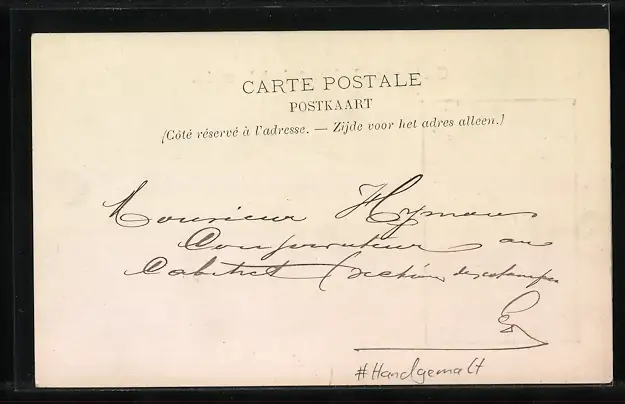 CARTE POSTALE
POSTKAART
(Côté réservé à l'adresse. — Zijde voor het adres alleen.)
Monsieur Hymans
Conservateur au
Cabinet (section des estampes
#Handgemalt